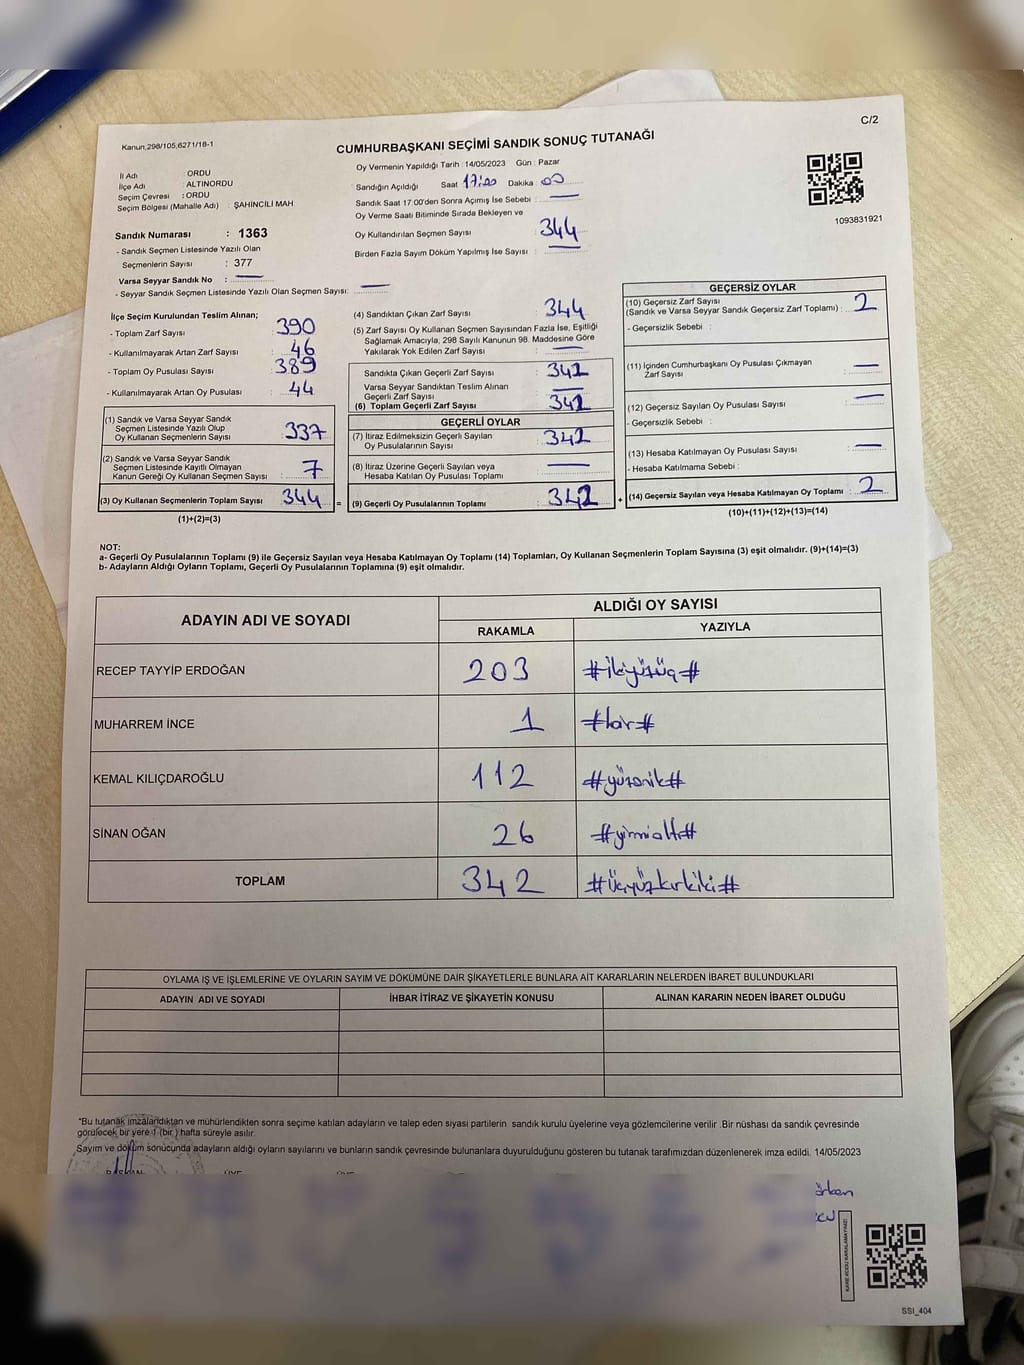 C/2
Kanun,298/105,6271/18-1
CUMHURBAŞKANI SEÇİMİ SANDIK SONUÇ TUTANAĞI
İl Adı : ORDU
İlçe Adı : ALTINORDU
Seçim Çevresi : ORDU
Seçim Bölgesi (Mahalle Adı) : ŞAHİNCİLİ MAH
Oy Vermenin Yapıldığı Tarih : 14/05/2023 Gün : Pazar
Sandığın Açıldığı Saat 17:00 Dakika : 00
Sandık Saat 17 00'den Sonra Açımış İse Sebebi :
Oy Verme Saati Bitiminde Sırada Bekleyen ve
Oy Kullandırılan Seçmen Sayısı : 344
Birden Fazla Sayım Döküm Yapılmış İse Sayısı :
1093831921
Sandık Numarası : 1363
- Sandık Seçmen Listesinde Yazılı Olan
Seçmenlerin Sayısı : 377
Varsa Seyyar Sandık No :
- Seyyar Sandık Seçmen Listesinde Yazılı Olan Seçmen Sayısı:
İlçe Seçim Kurulundan Teslim Alınan;
- Toplam Zarf Sayısı : 390
- Kullanılmayarak Artan Zarf Sayısı : 46
- Toplam Oy Pusulası Sayısı : 389
- Kullanılmayarak Artan Oy Pusulası : 44
(1) Sandık ve Varsa Seyyar Sandık
Seçmen Listesinde Yazılı Olup
Oy Kullanan Seçmenlerin Sayısı : 337
(2) Sandık ve Varsa Seyyar Sandık
Seçmen Listesinde Kayıtlı Olmayan
Kanun Gereği Oy Kullanan Seçmen Sayısı : 7
(3) Oy Kullanan Seçmenlerin Toplam Sayısı : 344 =
(1)+(2)=(3)
(4) Sandıktan Çıkan Zarf Sayısı : 344
(5) Zarf Sayısı Oy Kullanan Seçmen Sayısından Fazla İse, Eşitliği
Sağlamak Amacıyla, 298 Sayılı Kanunun 98. Maddesine Göre
Yakılarak Yok Edilen Zarf Sayısı :
Sandıkta Çıkan Geçerli Zarf Sayısı : 342
Varsa Seyyar Sandıktan Teslim Alınan
Geçerli Zarf Sayısı :
(6) Toplam Geçerli Zarf Sayısı : 342
GEÇERLİ OYLAR
(7) İtiraz Edilmeksizin Geçerli Sayılan
Oy Pusulasının Sayısı : 342
(8) İtiraz Üzerine Geçerli Sayılan veya
Hesaba Katılan Oy Pusulası Toplamı :
(9) Geçerli Oy Pusulalarının Toplamı : 342 +
GEÇERSİZ OYLAR
(10) Geçersiz Zarf Sayısı
(Sandık ve Varsa Seyyar Sandık Geçersiz Zarf Toplamı) : 2
- Geçersizlik Sebebi :
(11) İçinden Cumhurbaşkanı Oy Pusulası Çıkmayan
Zarf Sayısı :
(12) Geçersiz Sayılan Oy Pusulası Sayısı :
- Geçersizlik Sebebi :
(13) Hesaba Katılmayan Oy Pusulası Sayısı :
- Hesaba Katılmama Sebebi :
(14) Geçersiz Sayılan veya Hesaba Katılmayan Oy Toplamı : 2
(10)+(11)+(12)+(13)=(14)
NOT:
a- Geçerli Oy Pusulalarının Toplamı (9) ile Geçersiz Sayılan veya Hesaba Katılmayan Oy Toplamı (14) Toplamları, Oy Kullanan Seçmenlerin Toplam Sayısına (3) eşit olmalıdır. (9)+(14)=(3)
b- Adayların Aldığı Oyların Toplamı, Geçerli Oy Pusulalarının Toplamına (9) eşit olmalıdır.
ADAYIN ADI VE SOYADI ALDIĞI OY SAYISI
RAKAMLA YAZIYLA
RECEP TAYYİP ERDOĞAN 203 #ikiyüzüç#
MUHARREM İNCE 1 #bir#
KEMAL KILIÇDAROĞLU 112 #yüzonik#
SİNAN OĞAN 26 #yirmialtı#
TOPLAM 342 #üçyüzkırkiki#
OYLAMA İŞ VE İŞLEMLERİNE VE OYLARIN SAYIM VE DÖKÜMÜNE DAİR ŞİKAYETLERLE BUNLARA AİT KARARLARIN NELERDEN İBARET BULUNDUKLARI
ADAYIN ADI VE SOYADI İHBAR İTİRAZ VE ŞİKAYETİN KONUSU ALINAN KARARIN NEDEN İBARET OLDUĞU
*Bu tutanak imzalandıktan ve mühürlendikten sonra seçime katılan adayların ve talep eden siyasi partilerin sandık kurulu üyelerine veya gözlemcilerine verilir .Bir nüshası da sandık çevresinde
görülecek bir yere 1 (bir ) hafta süreyle asılır.
Sayım ve döküm sonucunda adayların aldığı oyların sayılarını ve bunların sandık çevresinde bulunanlara duyurulduğunu gösteren bu tutanak tarafımızdan düzenlenerek imza edildi. 14/05/2023
BAŞKAN
SSI_404